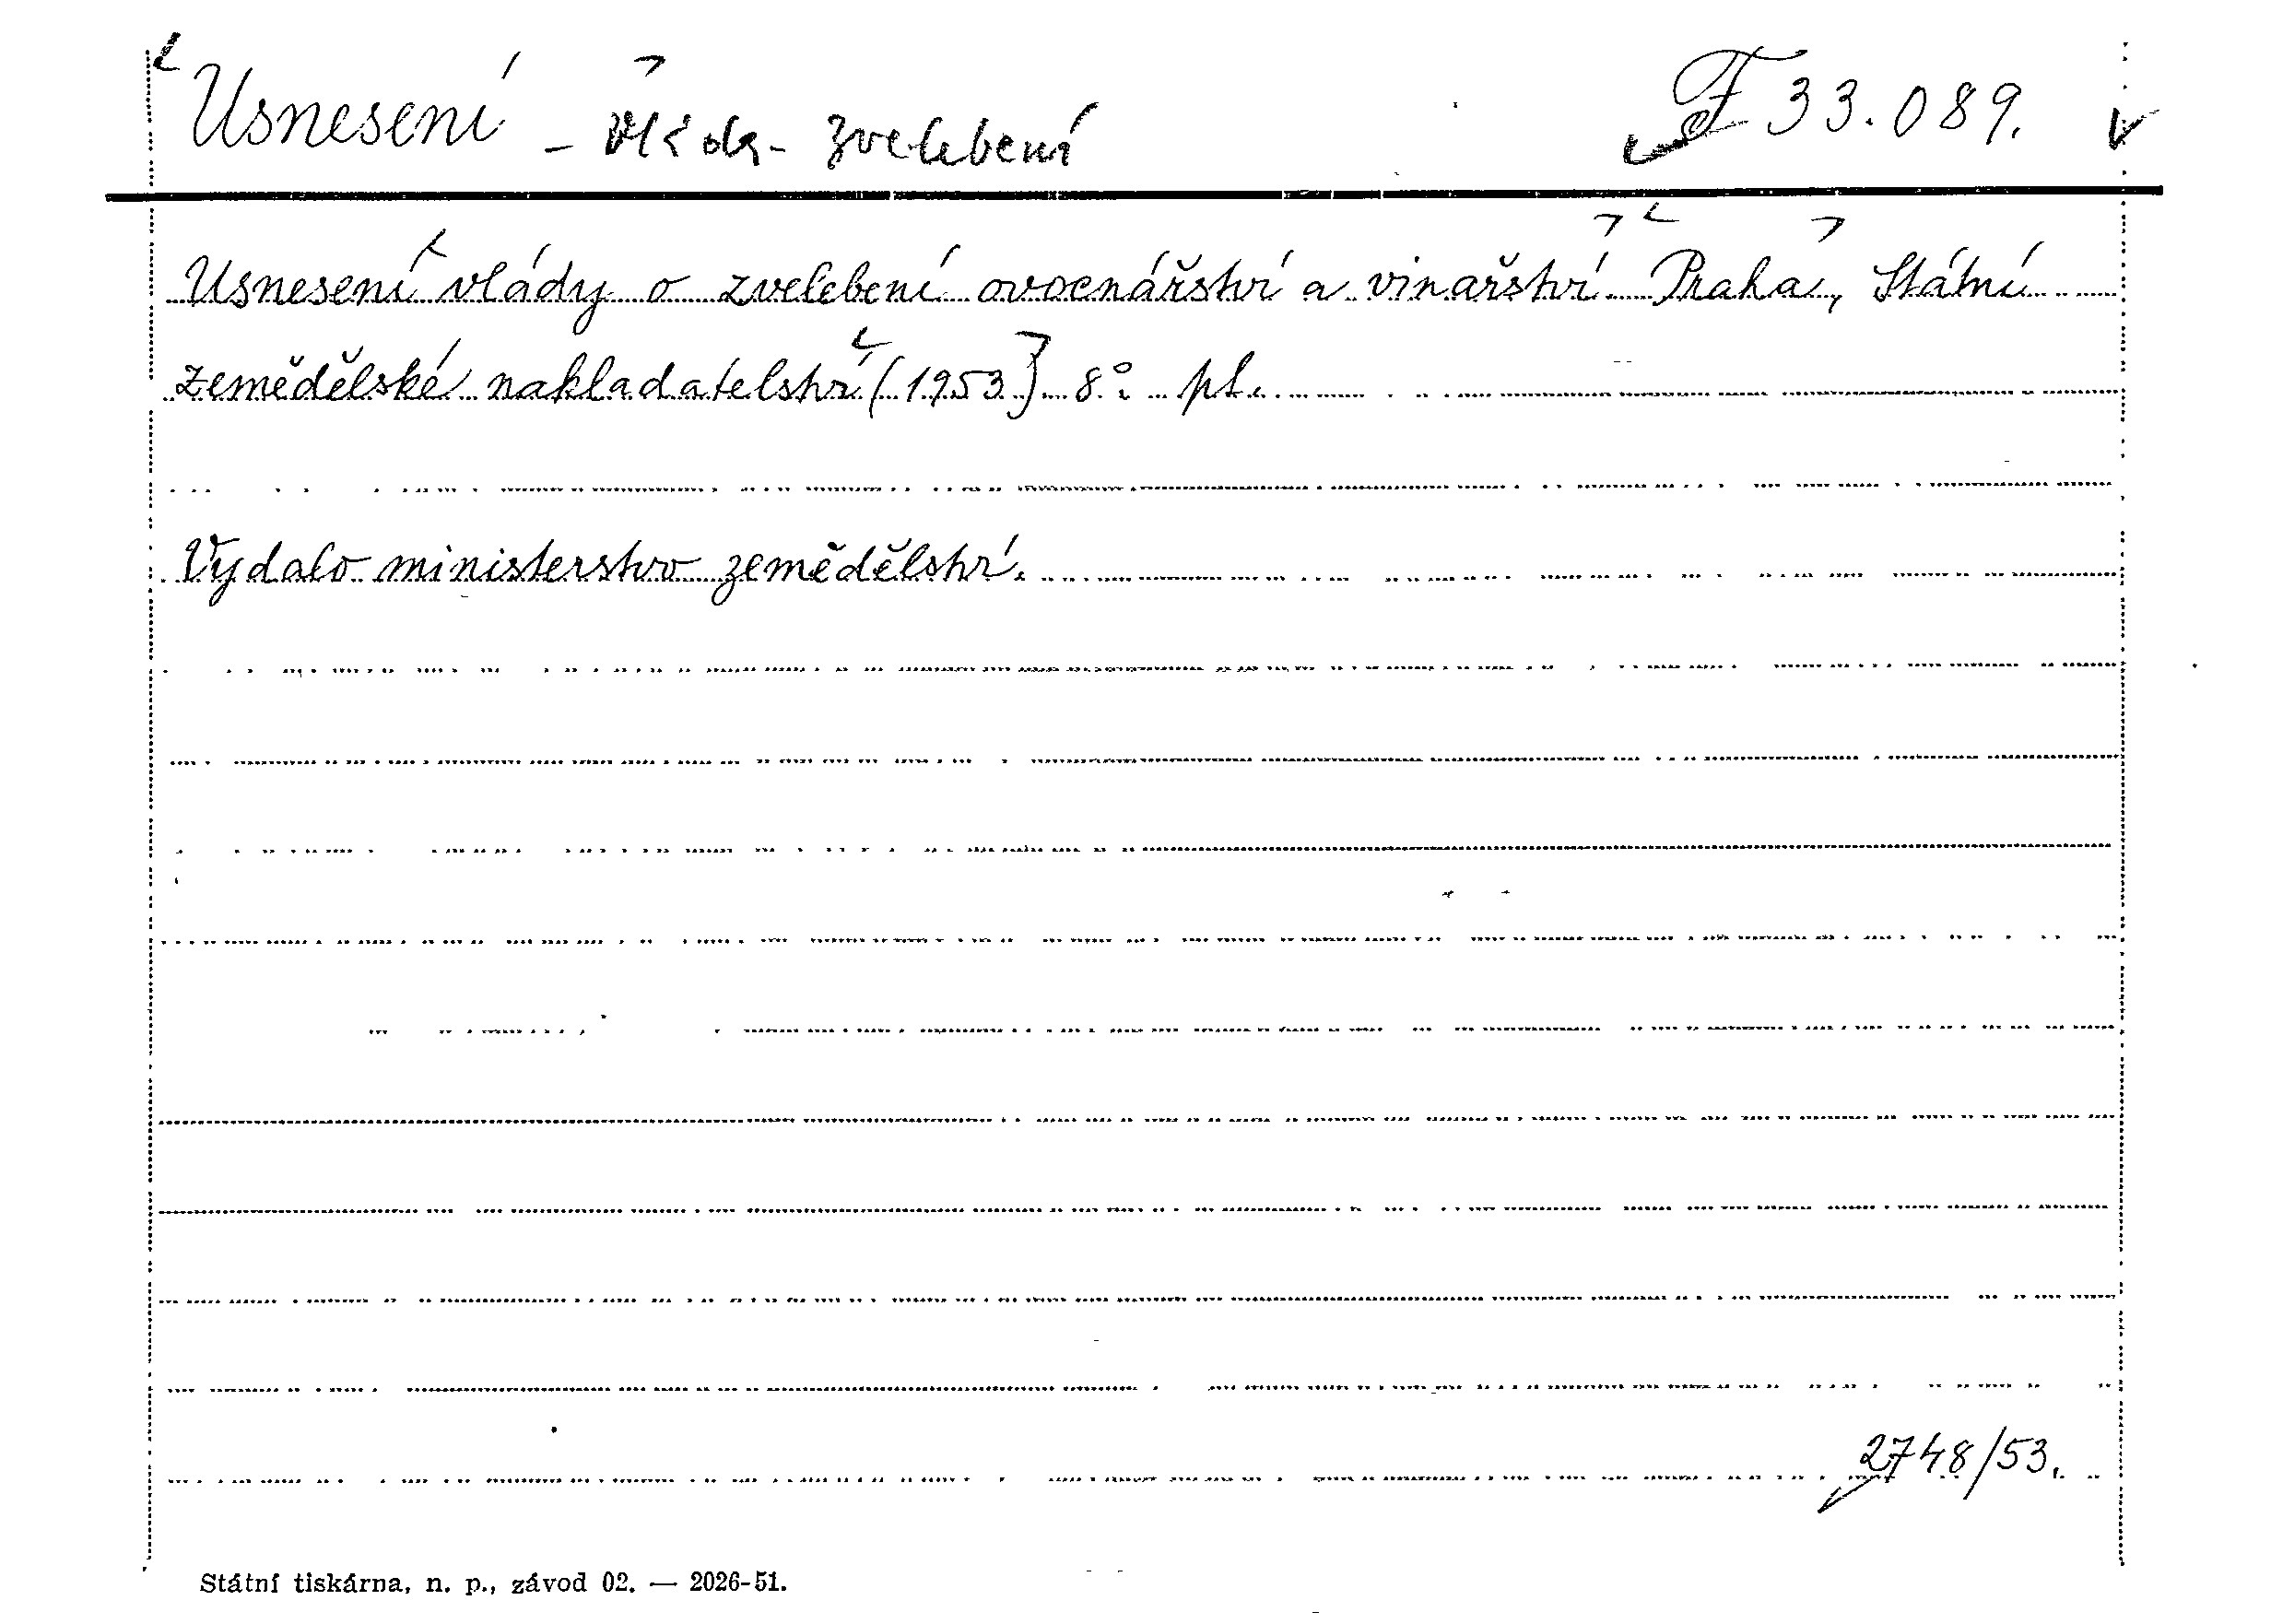 Usnesení - vláda - zvelebení F 33.089.
Usnesení vlády o zvelebení ovocnářství a vinařství. Praha, Státní
zemědělské nakladatelství (1953) 8°. pl.
Vydalo ministerstvo zemědělství.
2748/53.
Státní tiskárna, n. p., závod 02. — 2026-51.